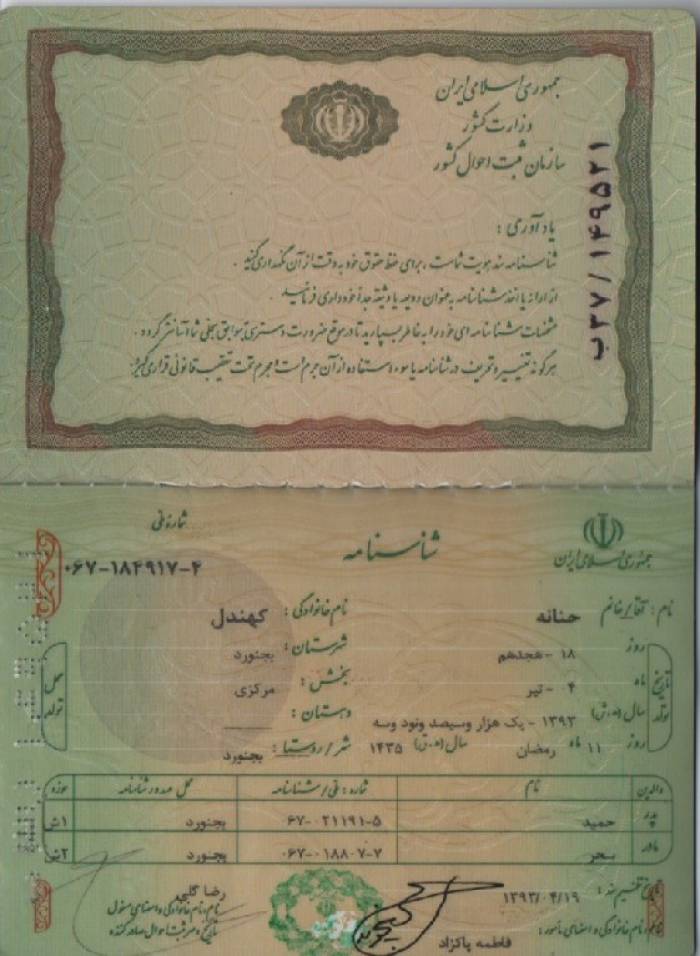 جمهوری اسلامی ایران
وزارت کشور
سازمان ثبت احوال کشور
ب۳۷/۱۴۹۵۲۱
یادآوری :
شناسنامه سند هویت شماست ، برای حفظ حقوق خود به دقت از آن نگهداری کنید .
از ارائه یا اخذ شناسنامه به عنوان ودیعه یا وثیقه جداً خودداری فرمائید .
مشخصات شناسنامه ای خود را به خاطر بسپارید تا در موقع ضرورت دسترسی به سوابق سجلی شما آسانتر گردد .
هرگونه تغییر و تحریف در شناسنامه یا سوء استفاده از آن جرم است و مجرم تحت تعقیب قانونی قرار می گیرد .
جمهوری اسلامی ایران
شناسنامه
شماره ملی
۰۶۷-۱۸۴۹۱۷-۴
نام : آقا/خانم حنانه
نام خانوادگی : کهندل
تاریخ تولد
روز ۱۸ - هجدهم
ماه ۴ - تیر
سال (ه.ش) ۱۳۹۳ - یک هزار وسیصد ونود وسه
روز ۱۱ ماه رمضان سال (ه.ق) ۱۴۳۵
محل تولد
شهرستان : بجنورد
بخش : مرکزی
دهستان :
شهر/روستا : بجنورد
والدین نام شماره : ملی/شناسنامه محل صدور شناسنامه حوزه
پدر حمید ۰۶۷-۰۲۱۱۹۱-۵ بجنورد ۱ش
مادر سحر ۰۶۷-۰۱۸۸۰۷-۷ بجنورد ۲ش
تاریخ تنظیم سند : ۱۳۹۳/۰۴/۱۹
نام و نام خانوادگی و امضای مأمور :
فاطمه پاکزاد
رضا گلی
نام ، نام خانوادگی و امضای مسئول
تاریخ و مهر ثبت احوال صادر کننده